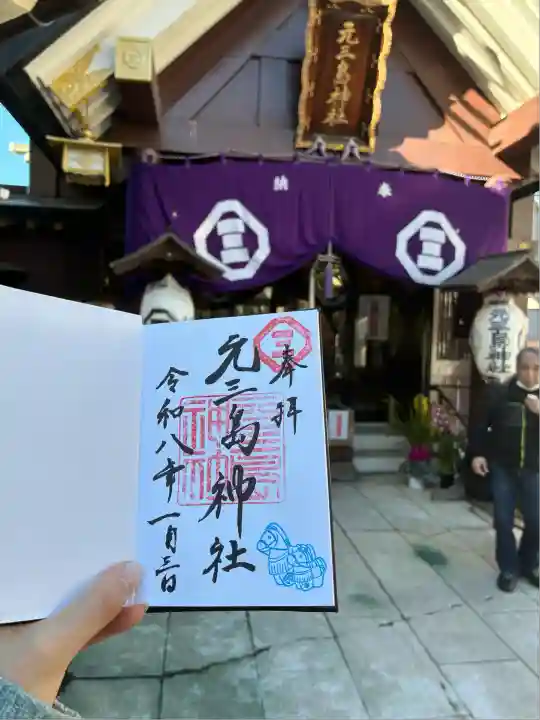 元三島神社
納 奉
三
三
元三島神社
奉拝
三
元三島神社
令和八年一月三日